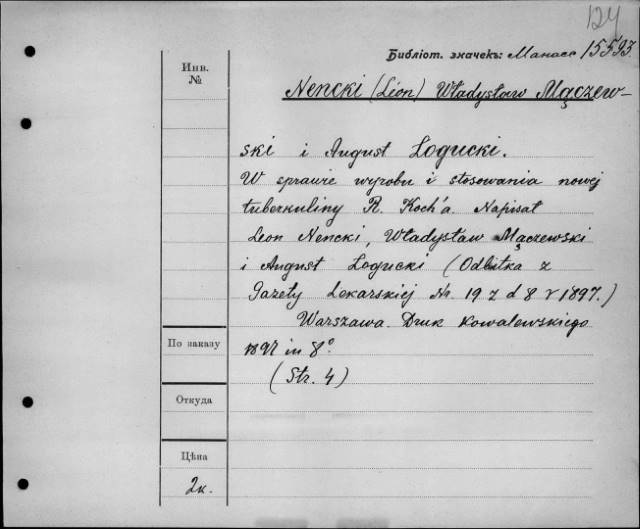 124
Библіот. значекъ: Манасс 15593
Инв.
№
Nencki (Léon) Władysław Mączew-
ski i August Łogucki.
W sprawie wyrobu i stosowania nowej
tuberkuliny R. Koch'a. Napisał
Leon Nencki, Władysław Mączewski
i August Łogucki (Odbitka z
Gazety Lekarskiej Nr. 19 z d 8 V 1897.)
Warszawa. Druk Kowalewskiego
1897 in 8°.
(Str. 4)
По заказу
Откуда
Цѣна
2к.